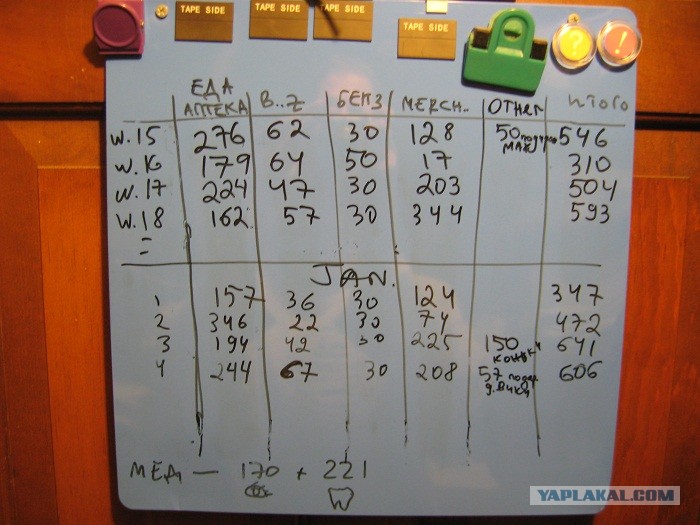 TAPE SIDE TAPE SIDE TAPE SIDE TAPE SIDE
ЕДА
АПТЕКА B..Z БЕНЗ MERCH.. OTHER ИТОГО
W.15 276 62 30 128 50 546
W.16 179 64 50 17 310
W.17 224 47 30 203 504
W.18 162 57 30 344 593
=
JAN.
1 157 36 30 124 347
2 346 22 30 74 472
3 194 42 30 225 150 641
4 244 67 30 208 57 606
МЁД — 170 + 221
YAPLAKAL.COM